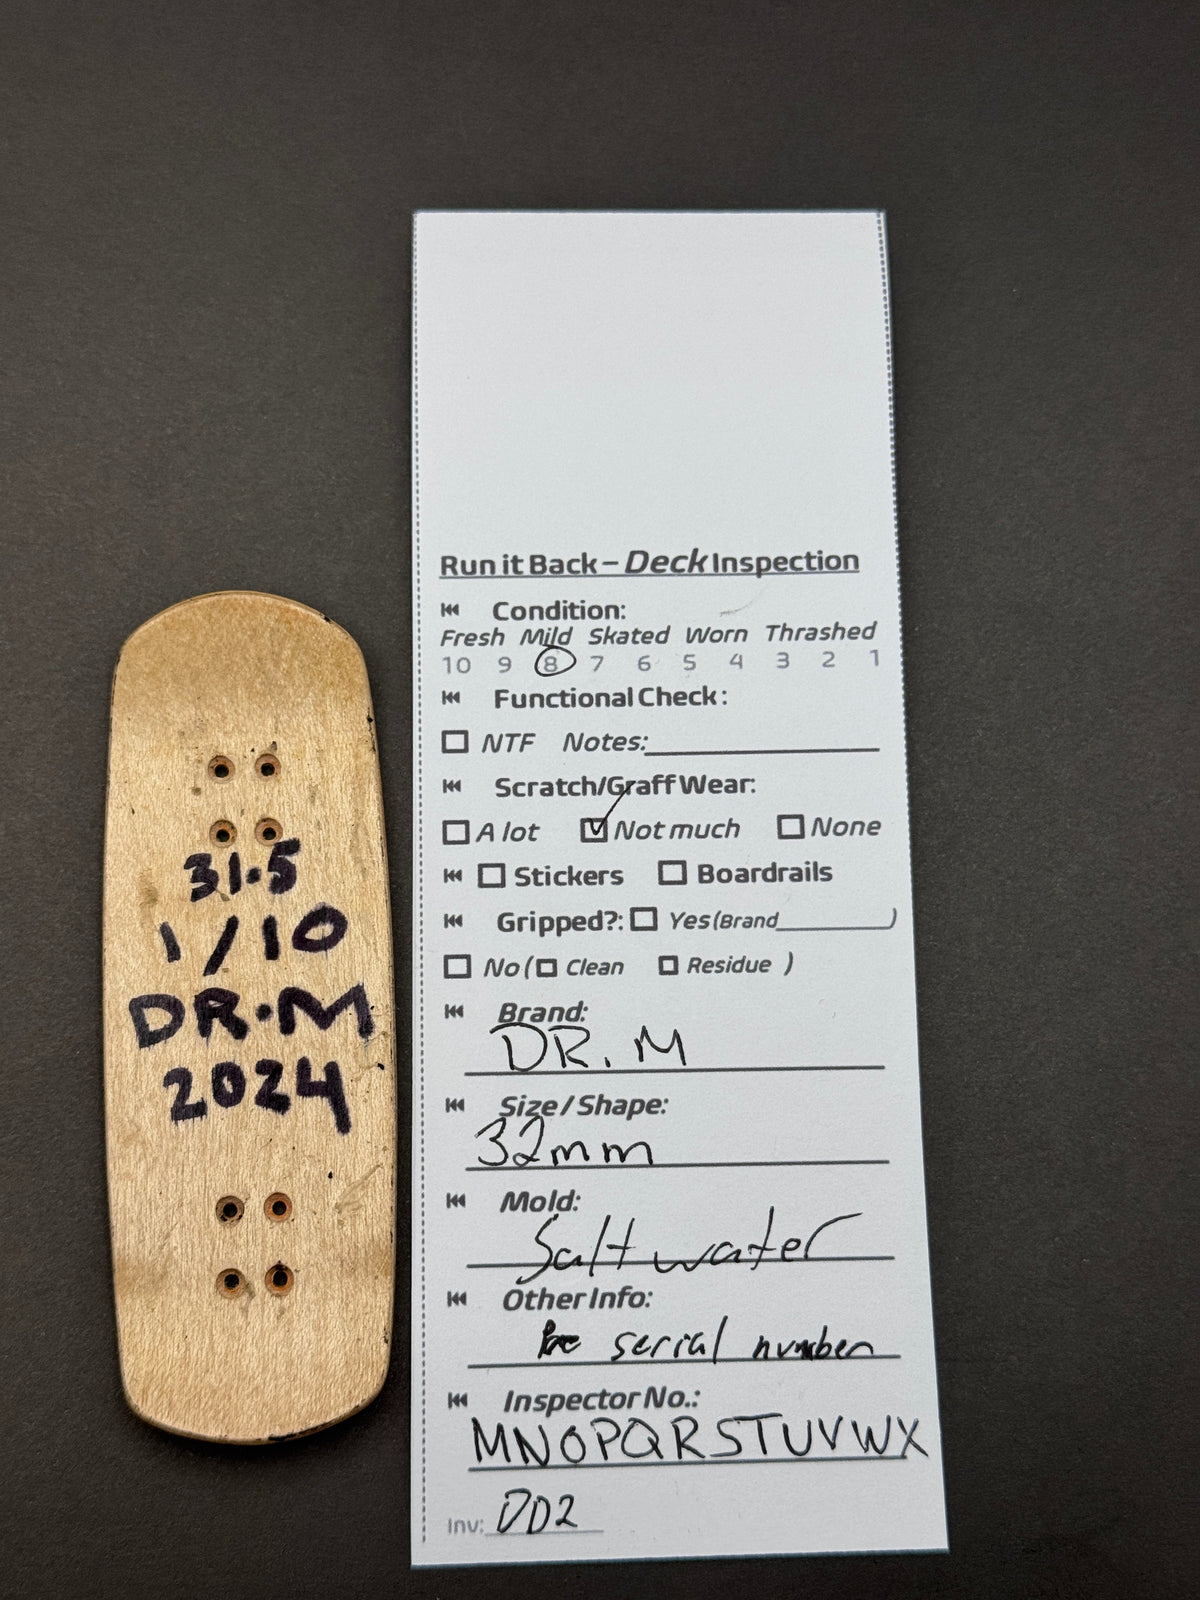 31.5
1/10
DR.M
2024
Run it Back – Deck Inspection
Condition:
Fresh Mild Skated Worn Thrashed
10 9 8 7 6 5 4 3 2 1
Functional Check:
NTF Notes:
Scratch/Graff Wear:
A lot Not much None
Stickers Boardrails
Gripped?: Yes (Brand )
No ( Clean Residue )
Brand:
DR. M
Size / Shape:
32mm
Mold:
Saltwater
Other Info:
serial number
Inspector No.:
MNOPQRSTUVWX
Inv: DD2